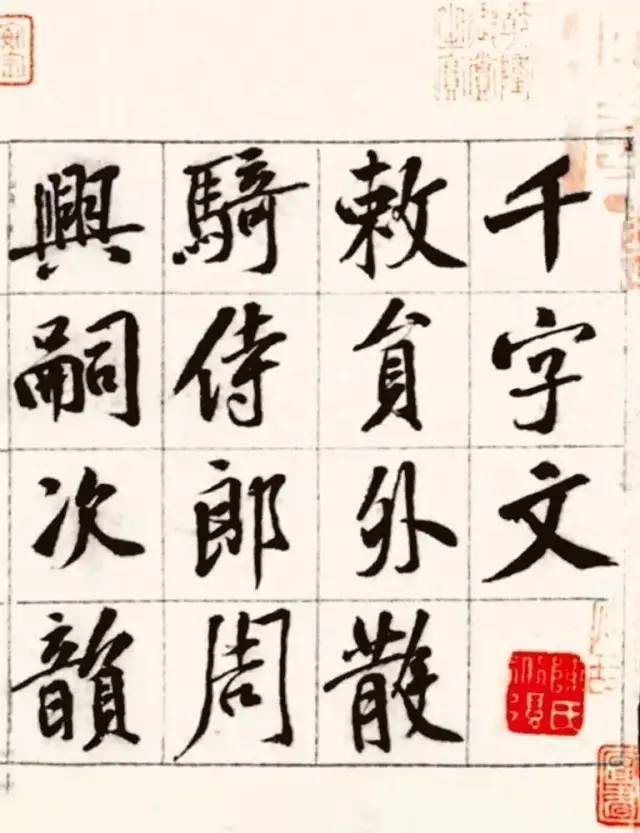 千字文
敕員外散
騎侍郎周
興嗣次韻